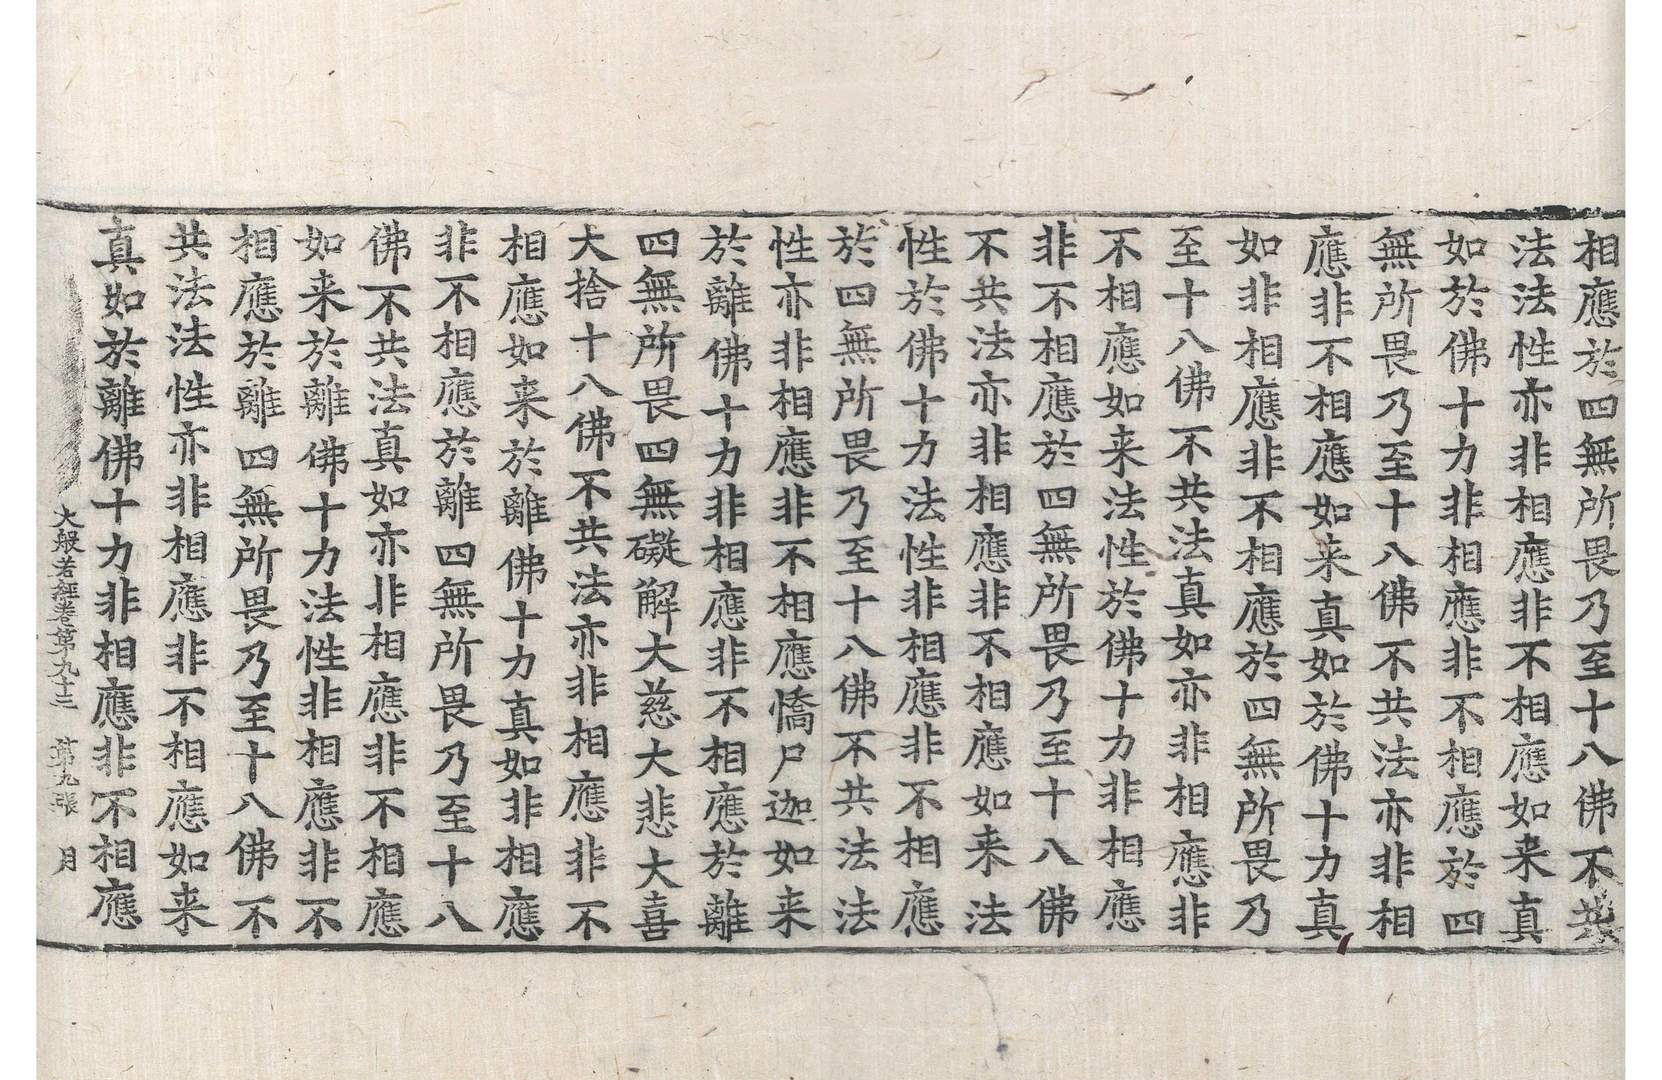 相應於四無所畏乃至十八佛不共
法法性亦非相應非不相應如来真
如於佛十力非相應非不相應於四
無所畏乃至十八佛不共法亦非相
應非不相應如来真如於佛十力真
如非相應非不相應於四無所畏乃
至十八佛不共法真如亦非相應非
不相應如来法性於佛十力非相應
非不相應於四無所畏乃至十八佛
不共法亦非相應非不相應如来法
性於佛十力法性非相應非不相應
於四無所畏乃至十八佛不共法法
性亦非相應非不相應憍尸迦如来
於離佛十力非相應非不相應於離
四無所畏四無礙解大慈大悲大喜
大捨十八佛不共法亦非相應非不
相應如来於離佛十力真如非相應
非不相應於離四無所畏乃至十八
佛不共法真如亦非相應非不相應
如来於離佛十力法性非相應非不
相應於離四無所畏乃至十八佛不
共法法性亦非相應非不相應如来
真如於離佛十力非相應非不相應
大般若經卷第九十二 第九張 月